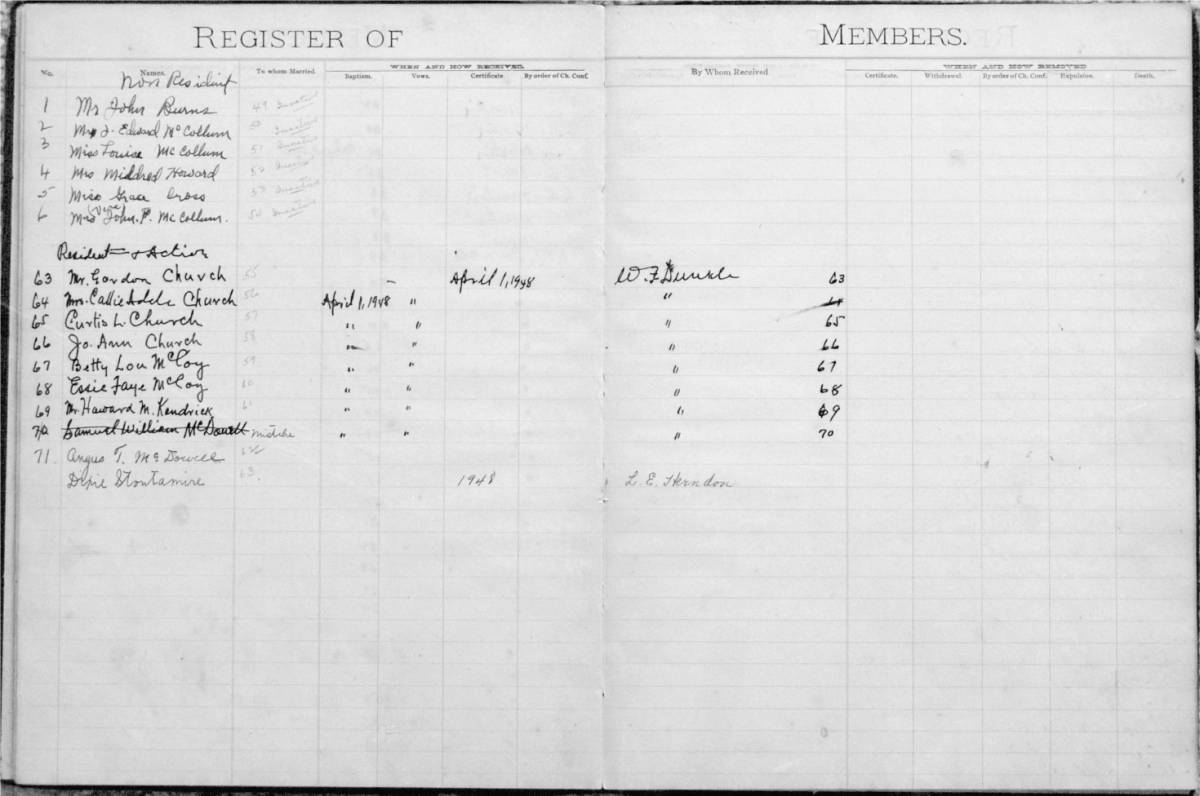 REGISTER OF MEMBERS.
No. Names. To whom Married. WHEN AND HOW RECEIVED. Baptism. Vows. Certificate. By order of Ch. Conf. By Whom Received WHEN AND HOW REMOVED Certificate. Withdrawal. By order of Ch. Conf. Expulsion. Death.
Non Resident
1 Mr John Burns 49 Inactive
2 Mr J. Edward McCollum 50 Inactive
3 Miss Louise McCollum 51 Inactive
4 Mrs Mildred Howard 52 Inactive
5 Miss Grace Cross 53 Inactive
6 Mrs John. P. McCollum. 54 Inactive
Resident & Active
63 Mr. Gordon Church 55 - April 1, 1948 W. F. Dunkle 63
64 Mrs. Callie Adele Church 56 April 1, 1948 " " 64
65 Curtis L. Church 57 " " " 65
66 Jo. Ann Church 58 " " " 66
67 Betty Lou McCoy 59 " " " 67
68 Essie Faye McCoy 60 " " " 68
69 Mr. Howard M. Kendrick 61 " " " 69
70 Samuel William McDowell mistake " " " 70
71 Angus T. McDowell 62
Dixie Stoutamire 63. 1948 L. E. Herndon